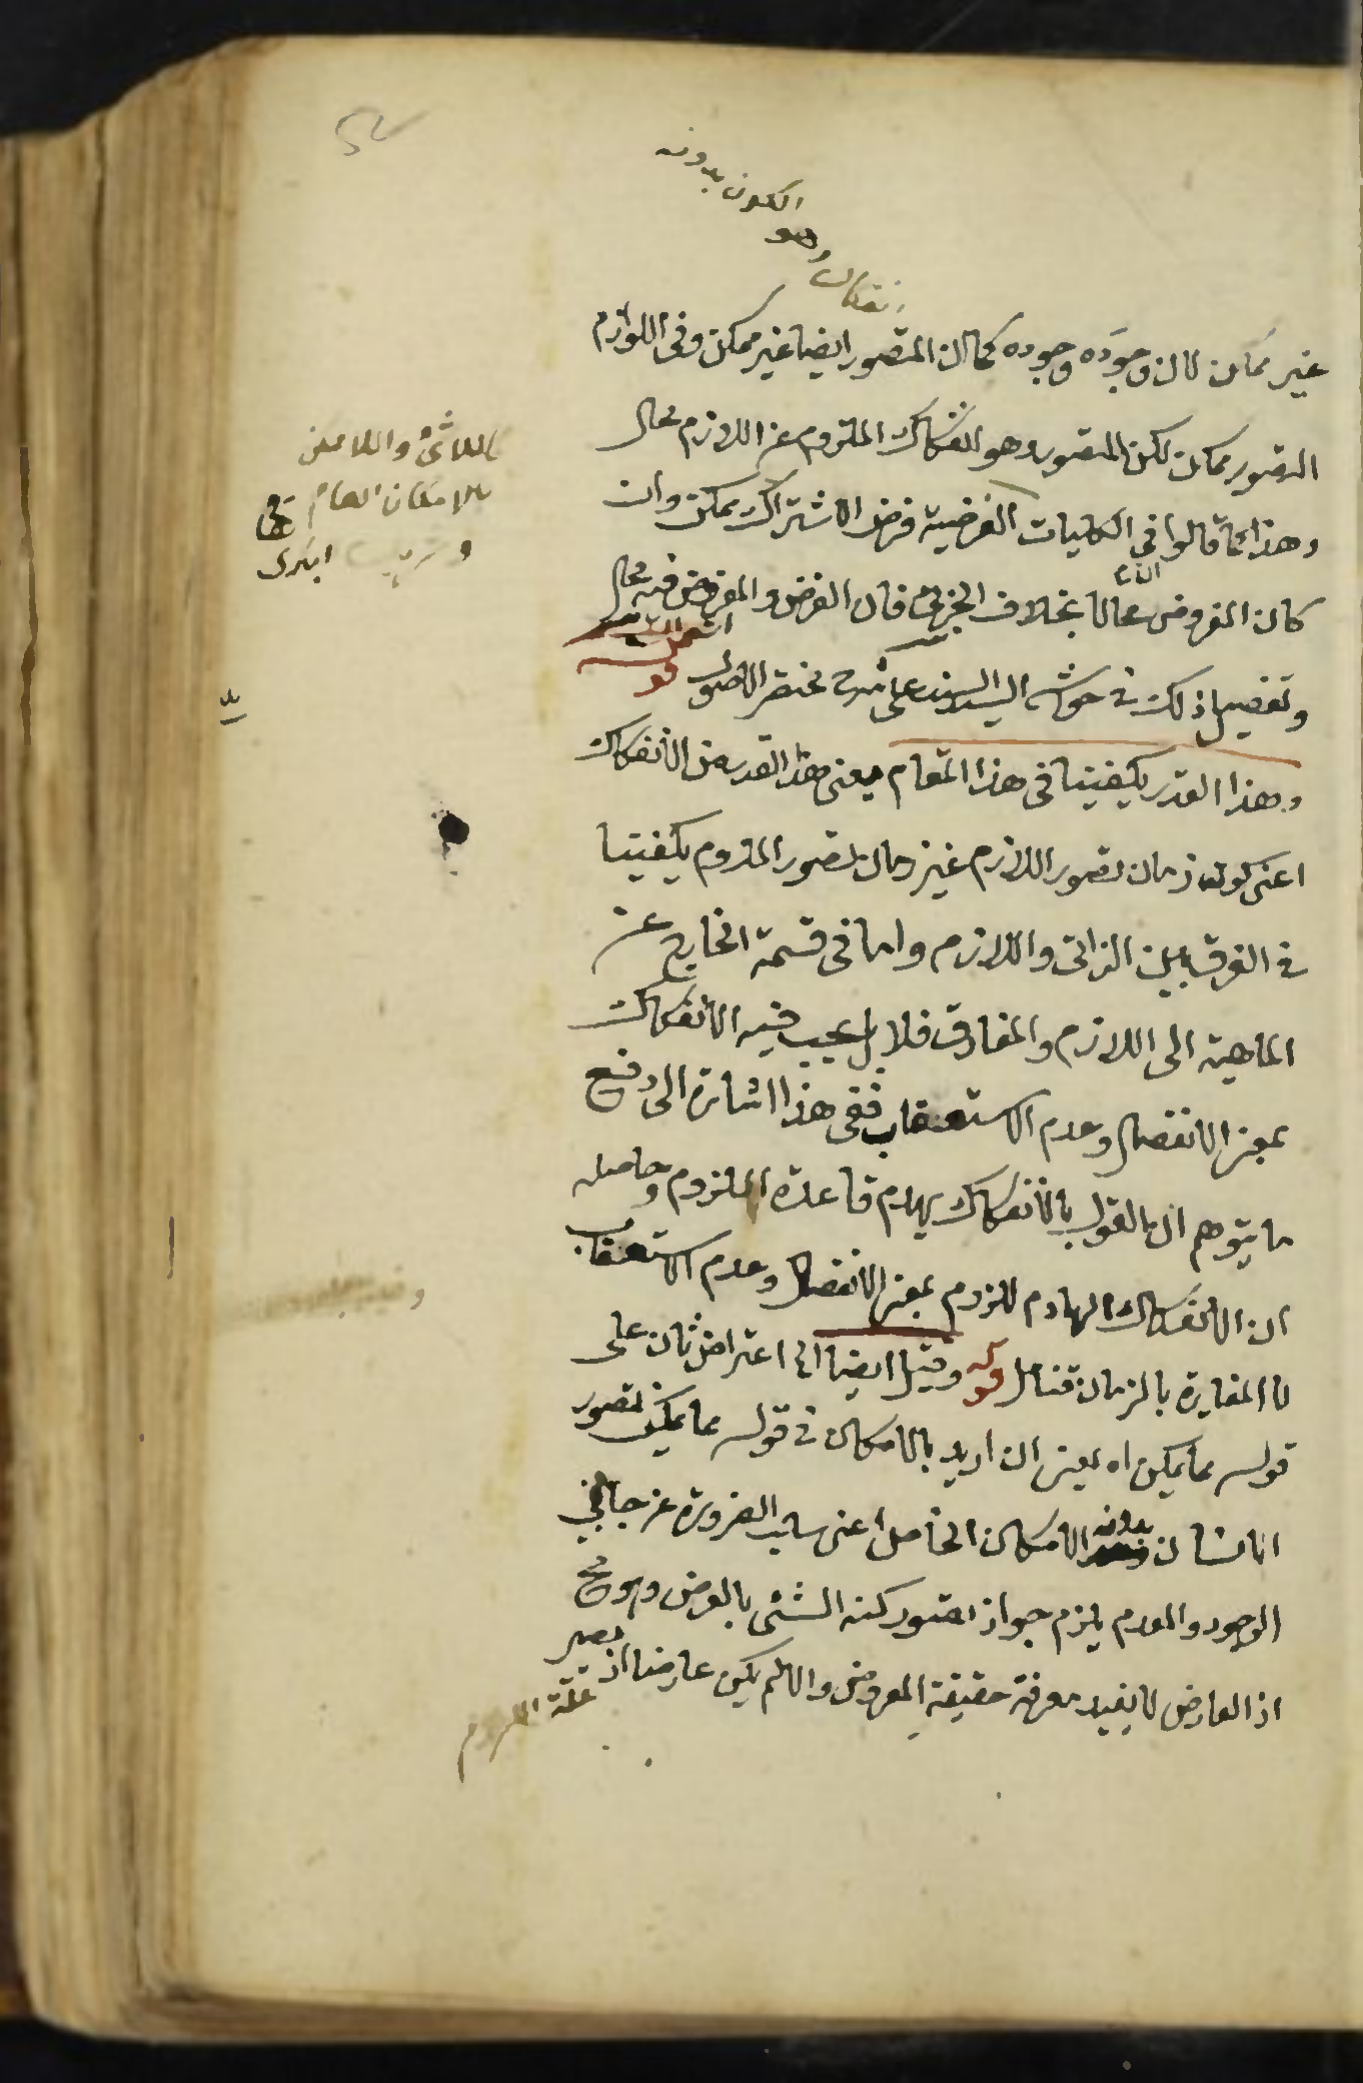 الكون بدونه
وهو
انفكاك
غير ممكن لان وجوده وجوده كان المتصور ايضا غير ممكن وفي اللوازم
التصور ممكن لكن المتصور وهو انفكاك الملزوم عن اللازم محال
وهذا كما قالوا في الكليات الفرضية فرض الاشتراك ممكن وان
كان المفروض محالا بخلاف الجزئي فان الفرض والمفروض فيه محال
وتفصيل ذلك في حواشي السيد السند على شرح مختصر الاصول قوله
وهذا القدر يكفينا في هذا المقام يعني هذا القدر من الانفكاك
اعني كون زمان تصور اللازم غير زمان تصور الملزوم يكفينا
في الفرق بين الذاتي واللازم واما في قسمة الخارج عن
الماهية الى اللازم والمفارق فلا بل يجب فيه الانفكاك
بمعنى الانفصال وعدم الاستعقاب ففي هذا اشارة الى دفع
ما يتوهم ان القول بالانفكاك يهدم قاعدة الملزوم وحاصله
ان الانفكاك الهادم للزوم بمعنى الانفصال وعدم الاستعقاب
لا المغايرة بالزمان فتأمل قوله وقيل ايضا اي اعتراض ثان على
قوله مما يمكن اه يعني ان اريد بالامكان في قوله مما يمكن تصور
الانسان بدونه الامكان الخاص اعني سلب الضرورة عن جانبي
الوجود والعدم يلزم جواز تصور كنه الشئ بالعرض وهو مح
اذ العارض لا يفيد معرفة حقيقة المعروض والا لم يكن عارضا اذ يصير
علة
واللا
بالامكان العام
52